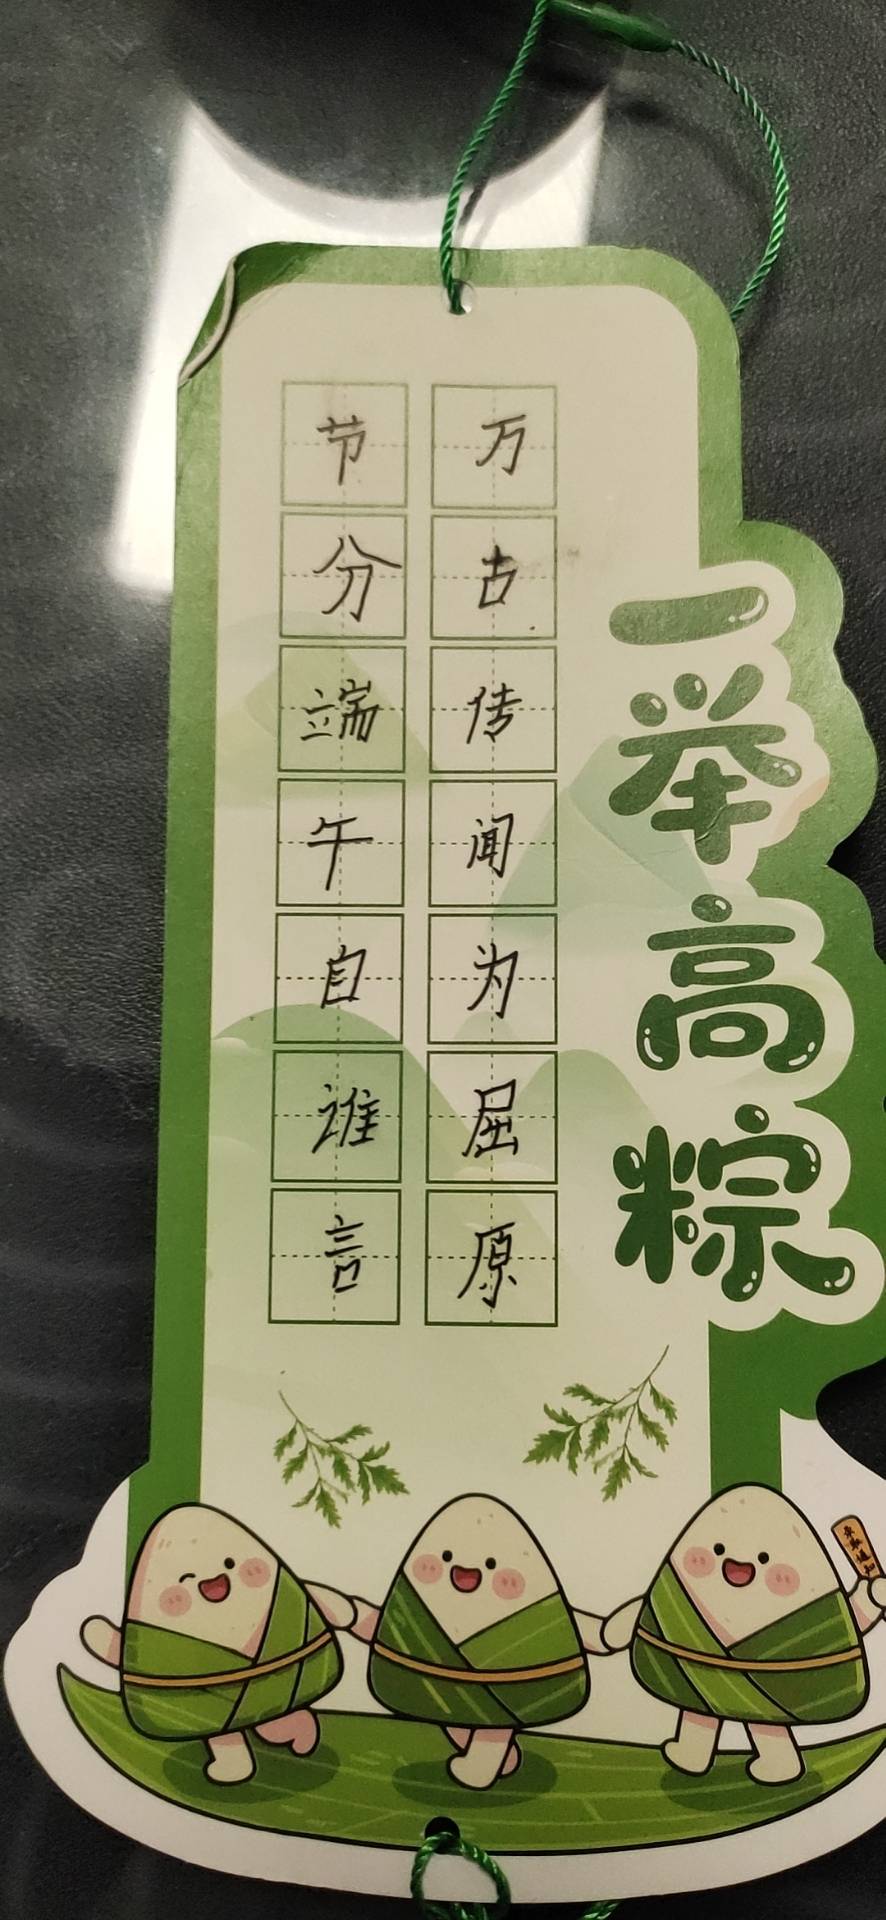 一举高粽
节分端午自谁言
万古传闻为屈原